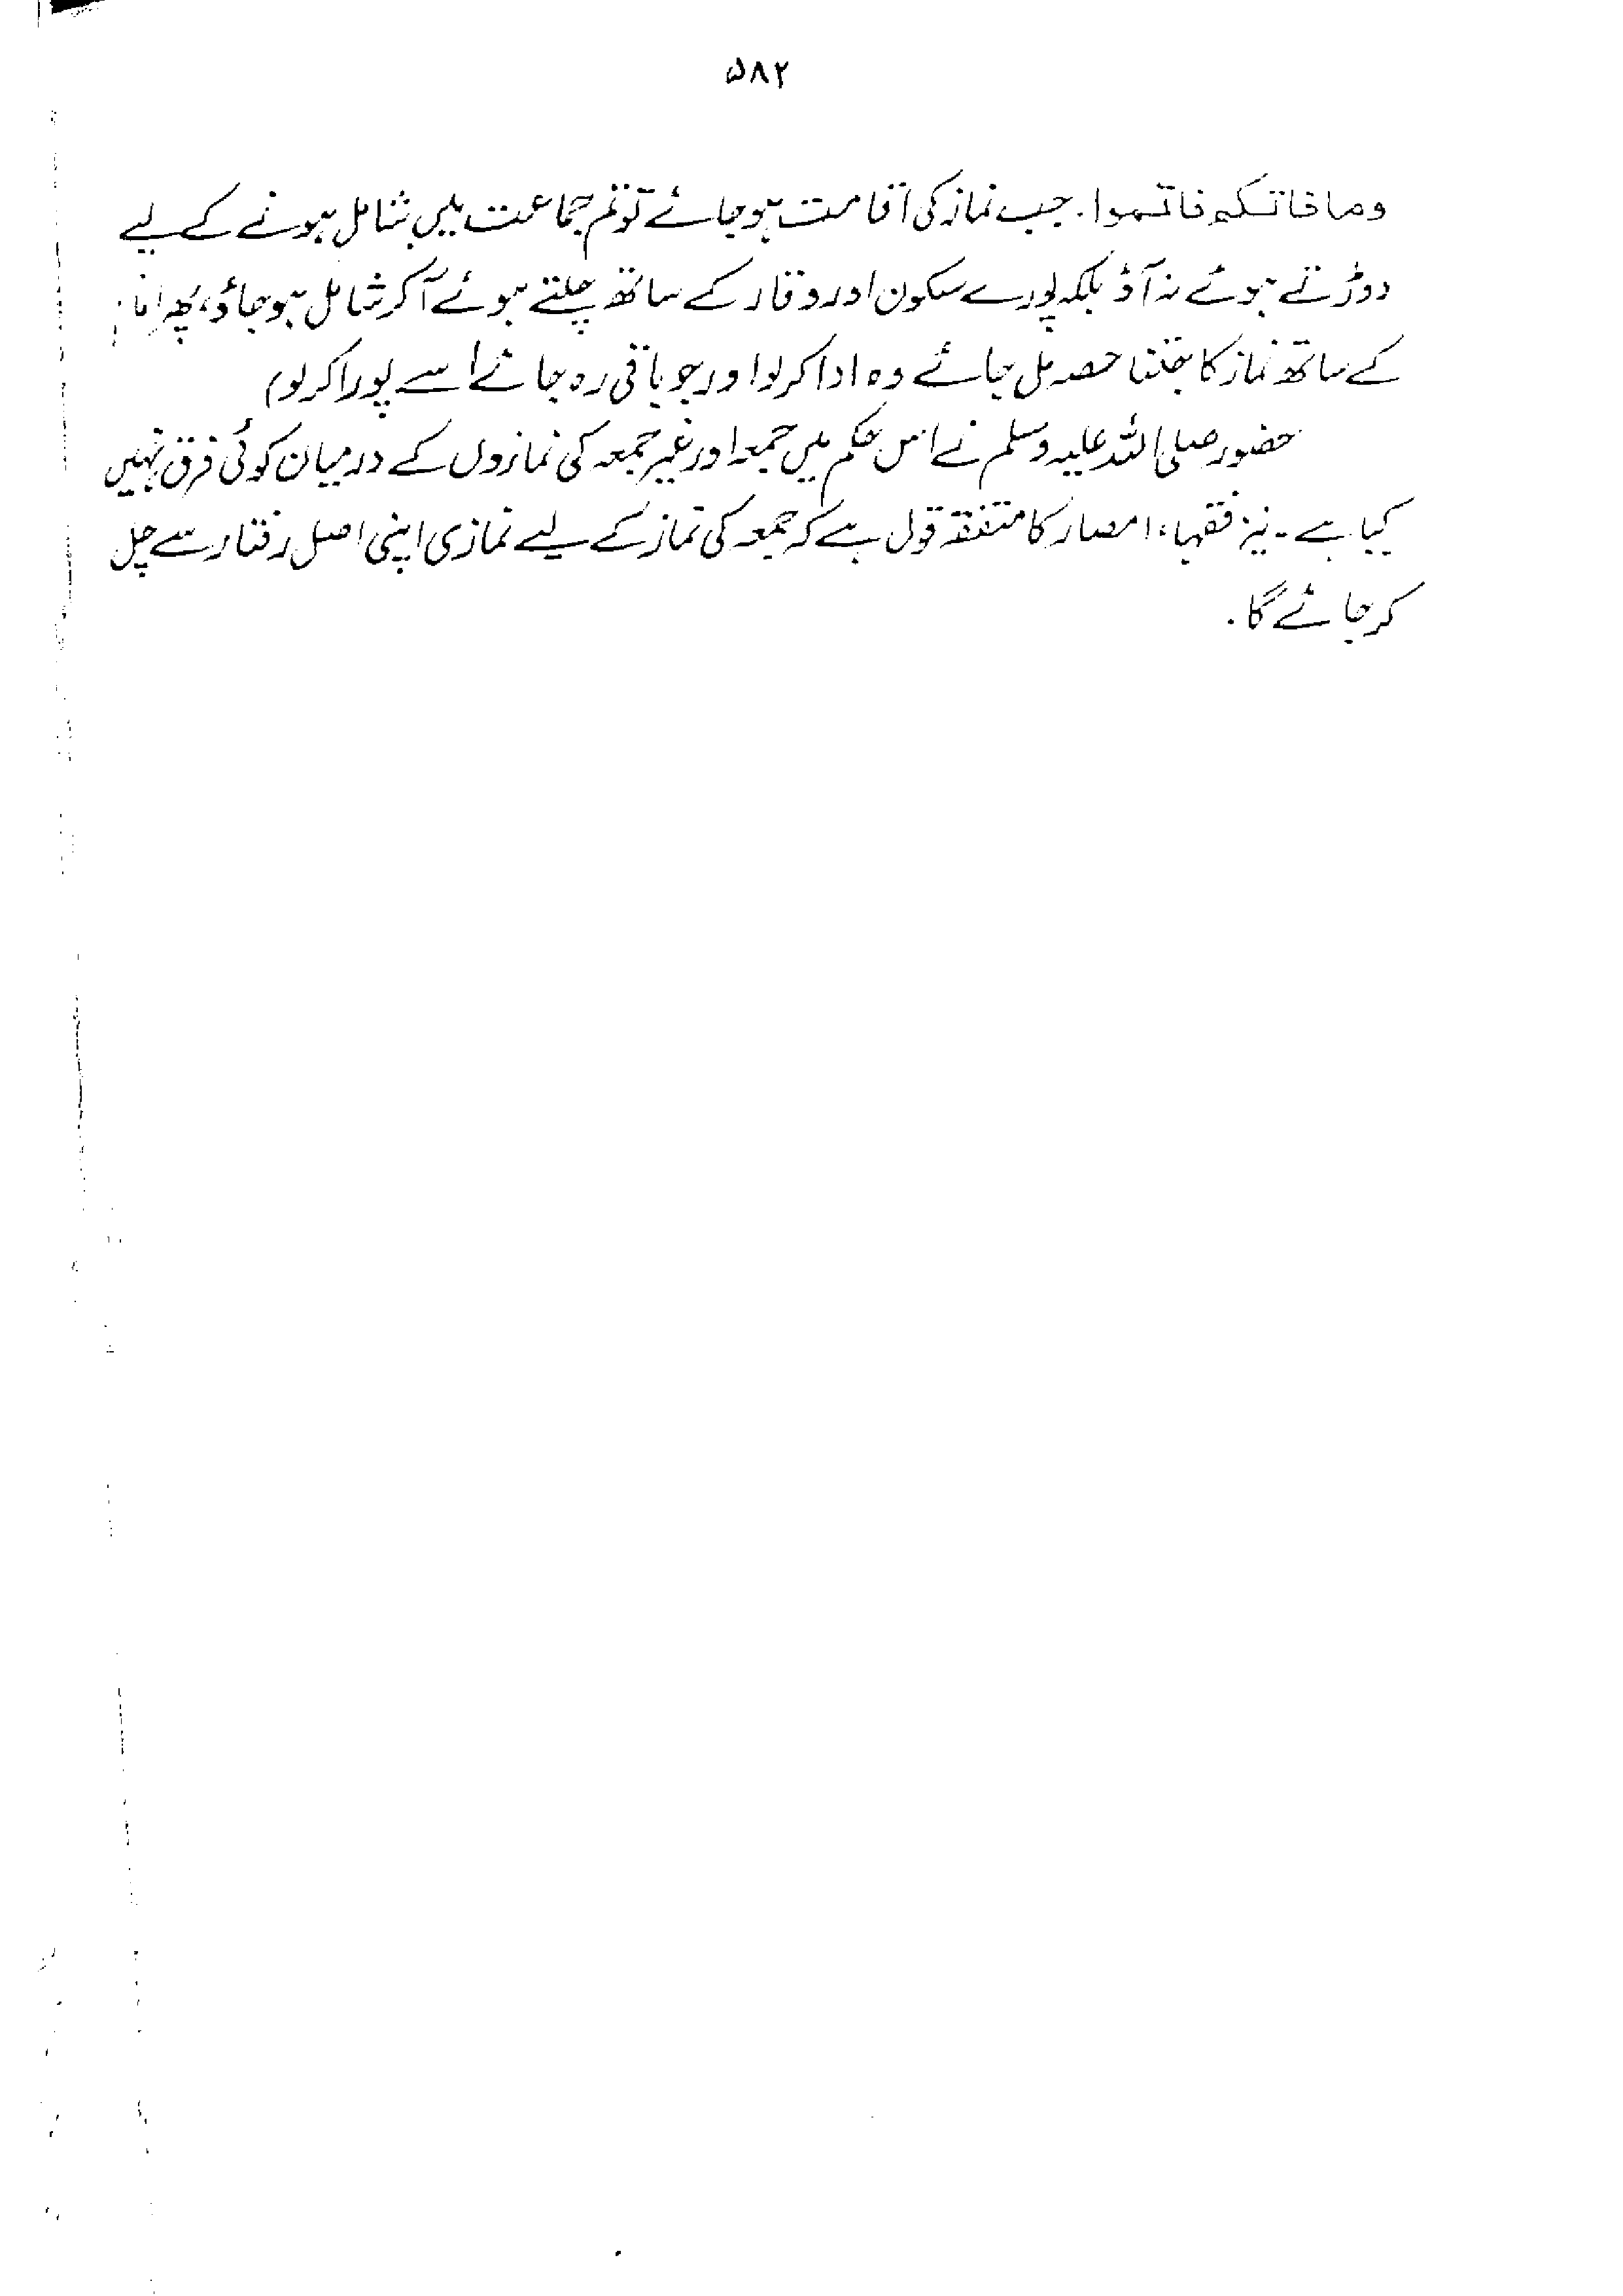 ۵۸۲
وما فاتکم فاتموا. جب نماز کی اقامت ہو جائے تو تم جماعت میں شامل ہونے کے لیے
دوڑتے ہوئے نہ آؤ بلکہ پورے سکون اور وقار کے ساتھ چلتے ہوئے آکر شامل ہو جاؤ، پھر امام
کے ساتھ نماز کا جتنا حصہ مل جائے وہ ادا کر لو اور جو باقی رہ جائے اسے پورا کر لو)
حضور صلی اللہ علیہ وسلم نے اس حکم میں جمعہ اور غیر جمعہ کی نمازوں کے درمیان کوئی فرق نہیں
کیا ہے۔ نیز فقہاء امصار کا متفقہ قول ہے کہ جمعہ کی نماز کے لیے نمازی اپنی اصل رفتار سے چل
کر جائے گا.